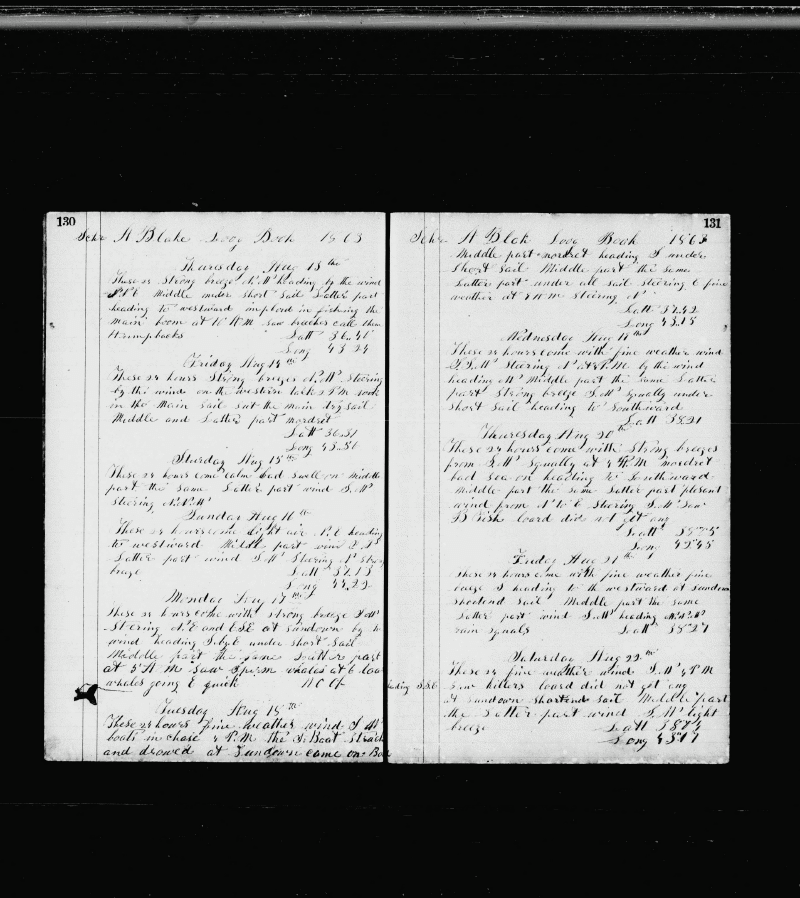 130
Schr A Blake Loog Book 1863
Thursday Aug 13th
These 24 hours strong breeze N.W heading by the wind
N.E Middle under short sail Latter part
heading to westward imployd in fishing the
main boom at 10 A.M saw breches call them
Hrimpbacks Latt 36.40
Long 43.24
Friday Aug 14th
These 24 hours strong breeze N.W. steering
by the wind on the western tack P.M took
in the Main sail sat the main trysail
Middle and Latter part modret
Latt 36.51
Long 43.50
Sturday Aug 15th
These 24 hours come calm bad swell on Middle
part the same Latter part wind S.W
steering N.N.W
Sunday Aug 16th
These 24 hours come light air N.E heading
to westward Middle part wind
Latter part wind S.W Steering N Strong
breeze Latt 37.13
Long 44.22
Monday Aug 17th
These 24 hours come with strong breeze S.W
Steering N.E and E.S.E at sundown by the
wind heading S.byE under short sail
Middle part the same Latter part
at 5 A.M saw Sperm whales at 6 low
whales going E quick N.C Of
Tuesday Aug 18th
These 24 hours fine weather wind S.W
boats in chase 4 P.M the S. Boat struck
and drowed at Sundown came on Board
131
Schr A Blak Loog Book 1863
Middle part modret heading S under
Short sail Middle part the same
Latter part under all sail steering E fine
weather at 8 A.M Steering N
Latt 37.42
Long 43.15
Wednesday Aug 19th
These 24 hours come with fine weather wind
S.S.W Steering N at 4 P.M by the wind
heading W Middle part the same Latter
part strong breeze S.W squally under
short sail heading to Southward
Latt 38.21
Thuresday Aug 20th
These 24 hours come with strong breezes
from S.W squally at 4 P.M modret
bad sea on heading to Southward
Middle part the same Latter part plesent
wind from N to E Steering S.W saw
B Fish loard did not get any
Latt
Long 42.45
Friday Aug 21th
These 24 hours come with fine weather fine
breeze S heading to the westward at sundown
shortend sail Middle part the same
Latter part wind S.W heading W.N.W
rain squals Latt 38.27
Saturday Aug 22th
These 24 fine weather wind S.W 4 P.M
heading S.S.E saw killers loard did not get any
at sundown shortend sail Middle part
the Latter part wind S.W light
breeze Latt
Long 43.17